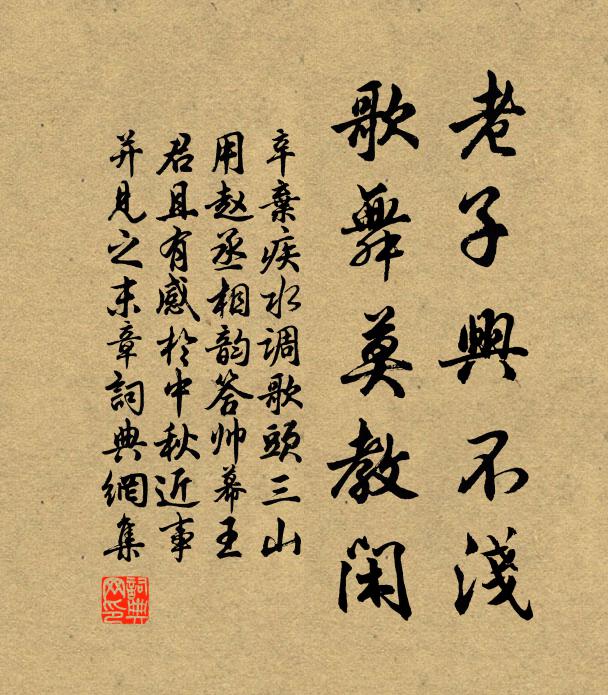 老子興不淺
歌舞莫教閑
辛棄疾水调歌頭三山
用赵丞相韵答帅幕王
君且有感於中秋近事
并見之末章詞典網集
詞典网印